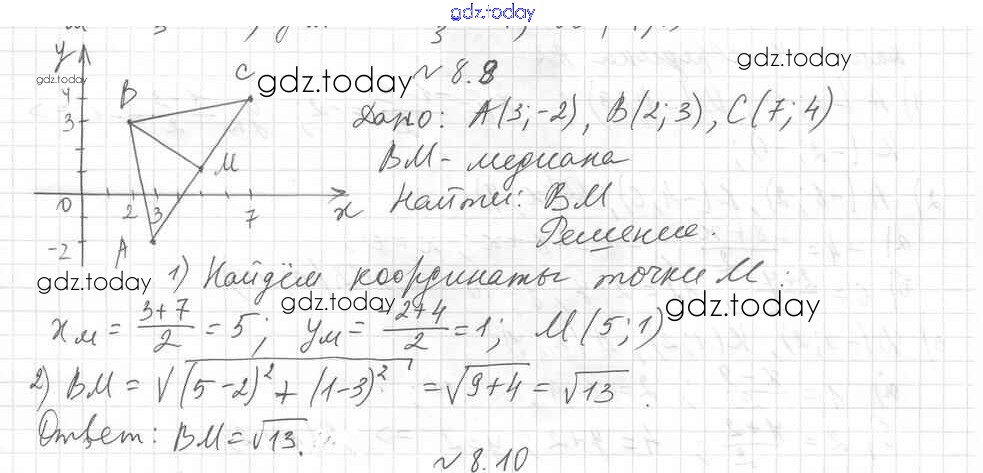 gdz.today
y
gdz.today
C
gdz.today
№ 8.8
gdz.today
B
4
3
Дано: A(3;-2), B(2;3), C(7;4)
BM - медиана
M
0 2 3 7 x
Найти: BM
Решение.
-2 A
gdz.today
1) Найдём координаты точки M:
gdz.today
gdz.today
x_M = (3+7)/2 = 5; y_M = (-2+4)/2 = 1; M(5;1)
2) BM = √((5-2)² + (1-3)²) = √(9+4) = √13.
Ответ: BM = √13.
№ 8.10